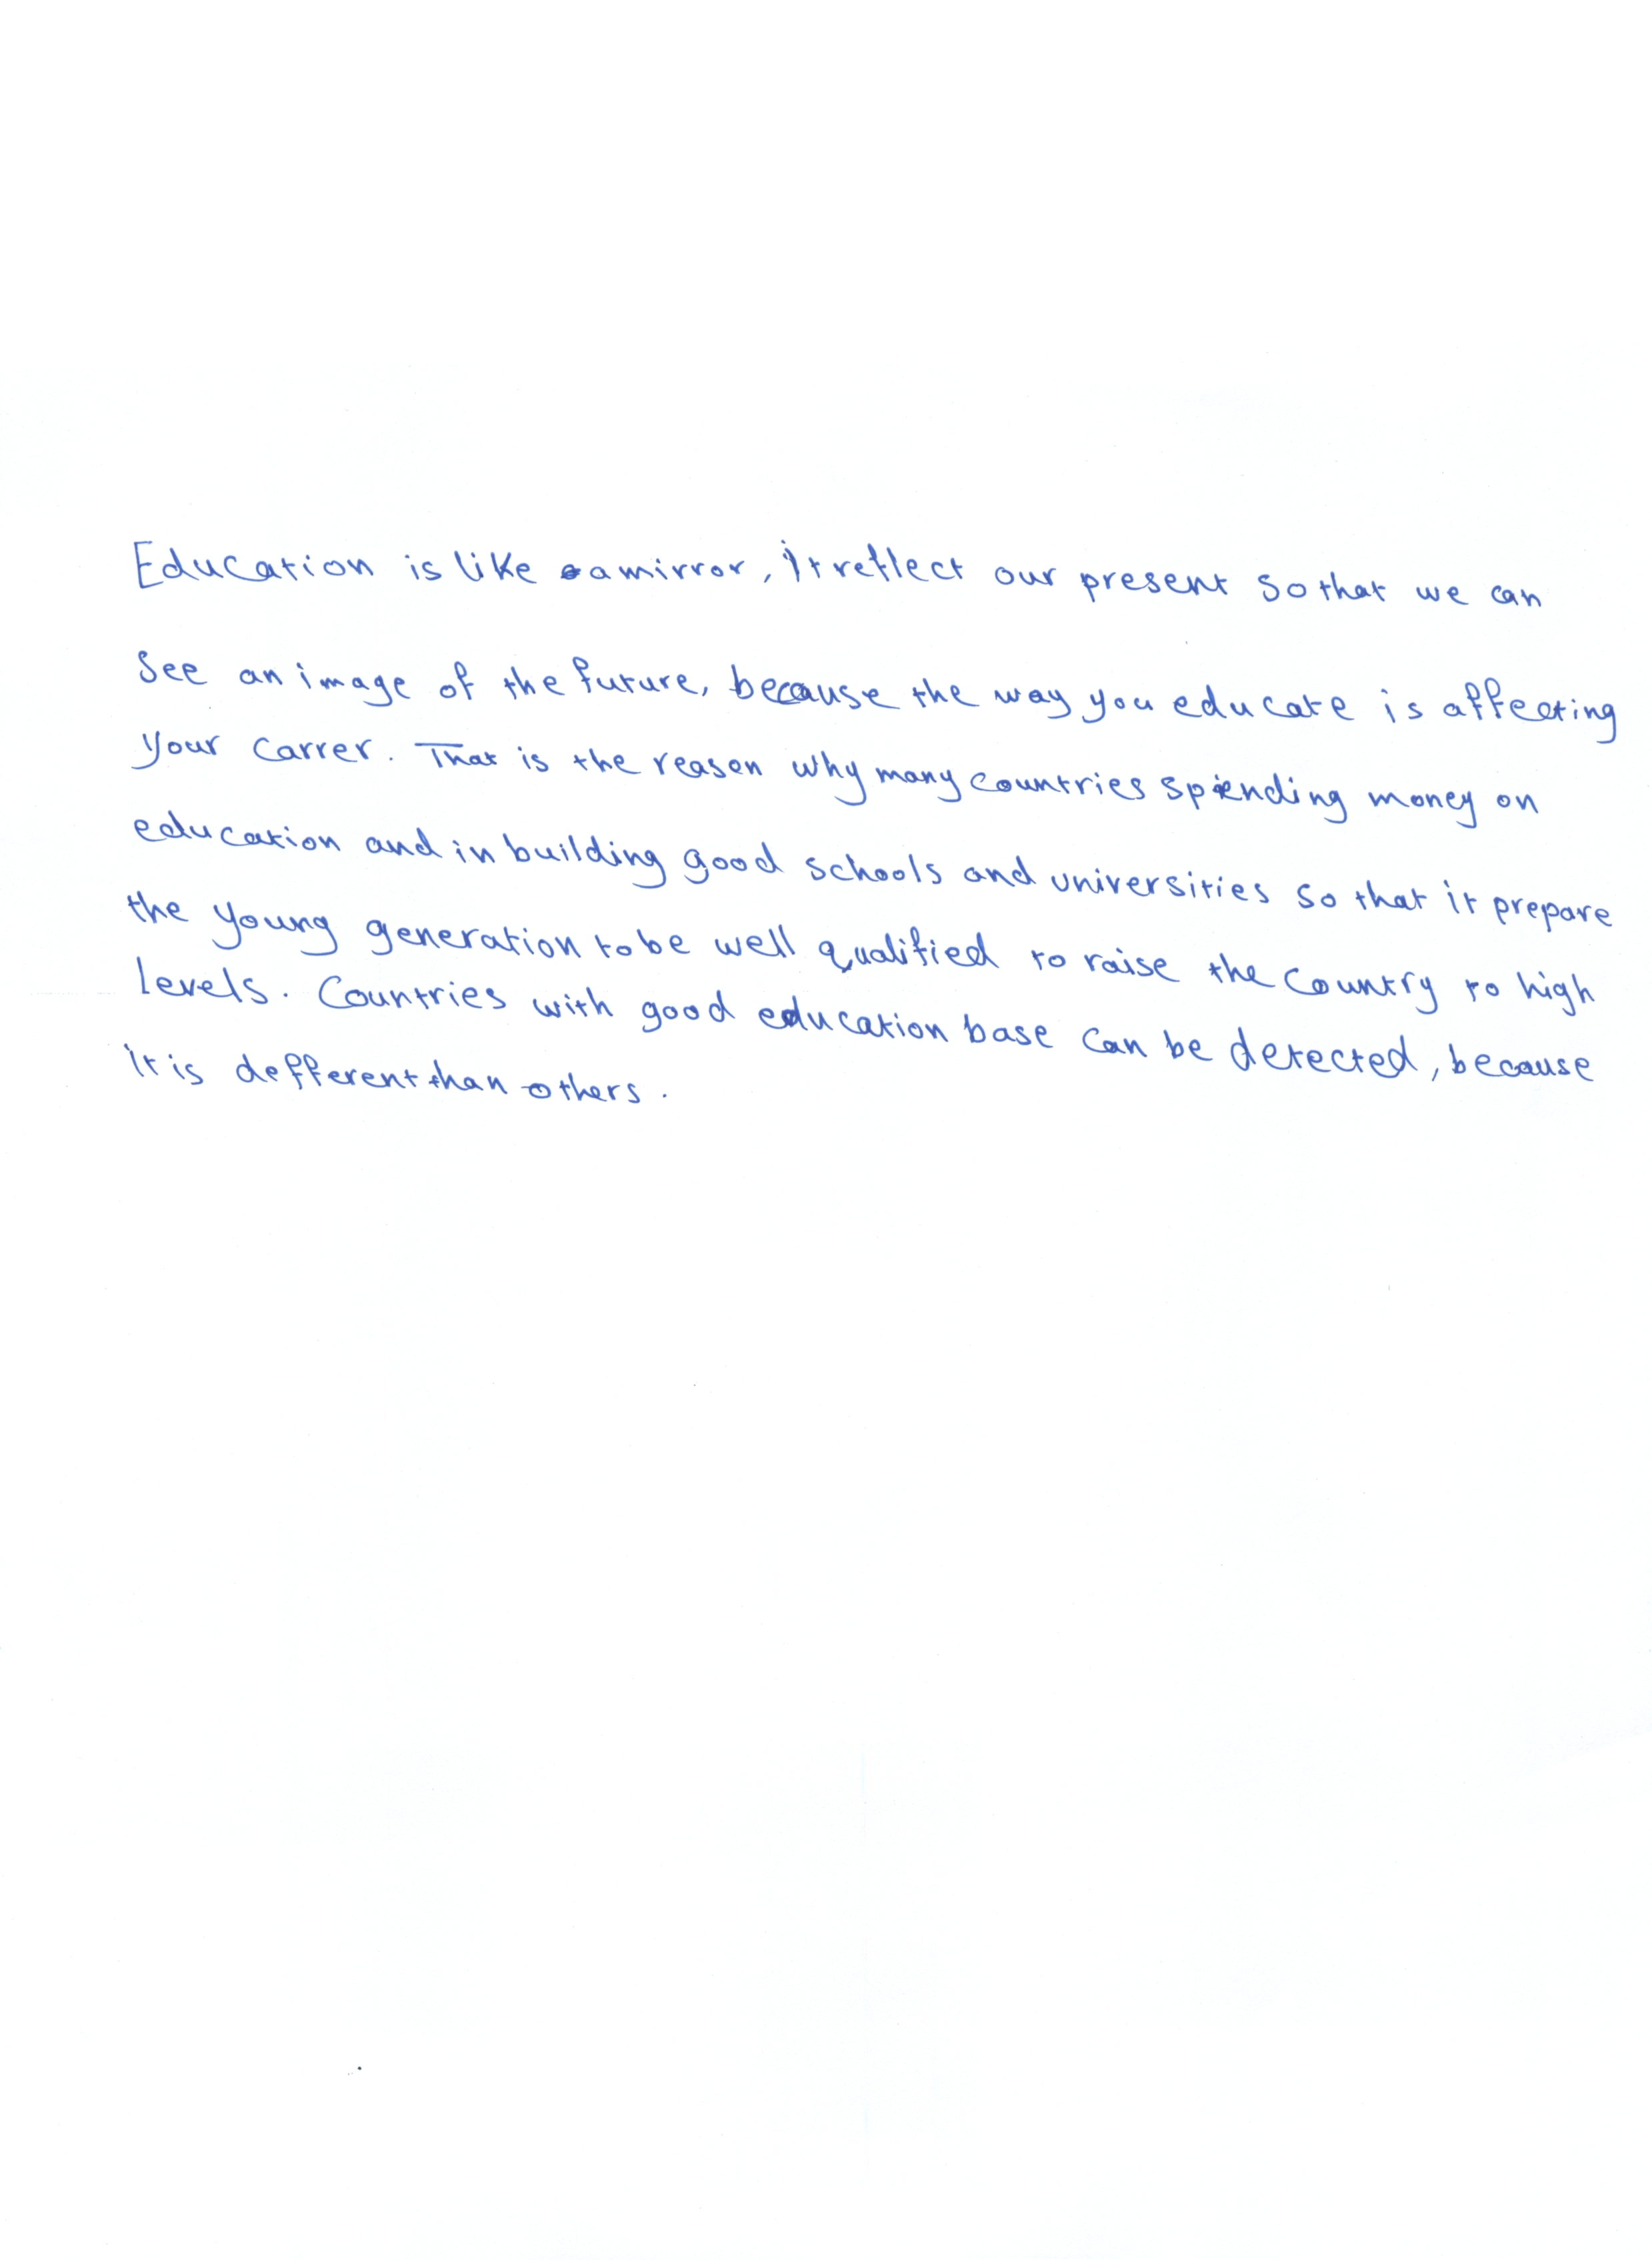 Education is like a mirror, It reflect our present so that we can
see an image of the future, because the way you educate is affecting
your carrer. That is the reason why many countries spending money on
education and in building good schools and universities so that it prepare
the young generation to be well qualified to raise the country to high
levels. Countries with good education base can be detected, because
it is defferent than others.